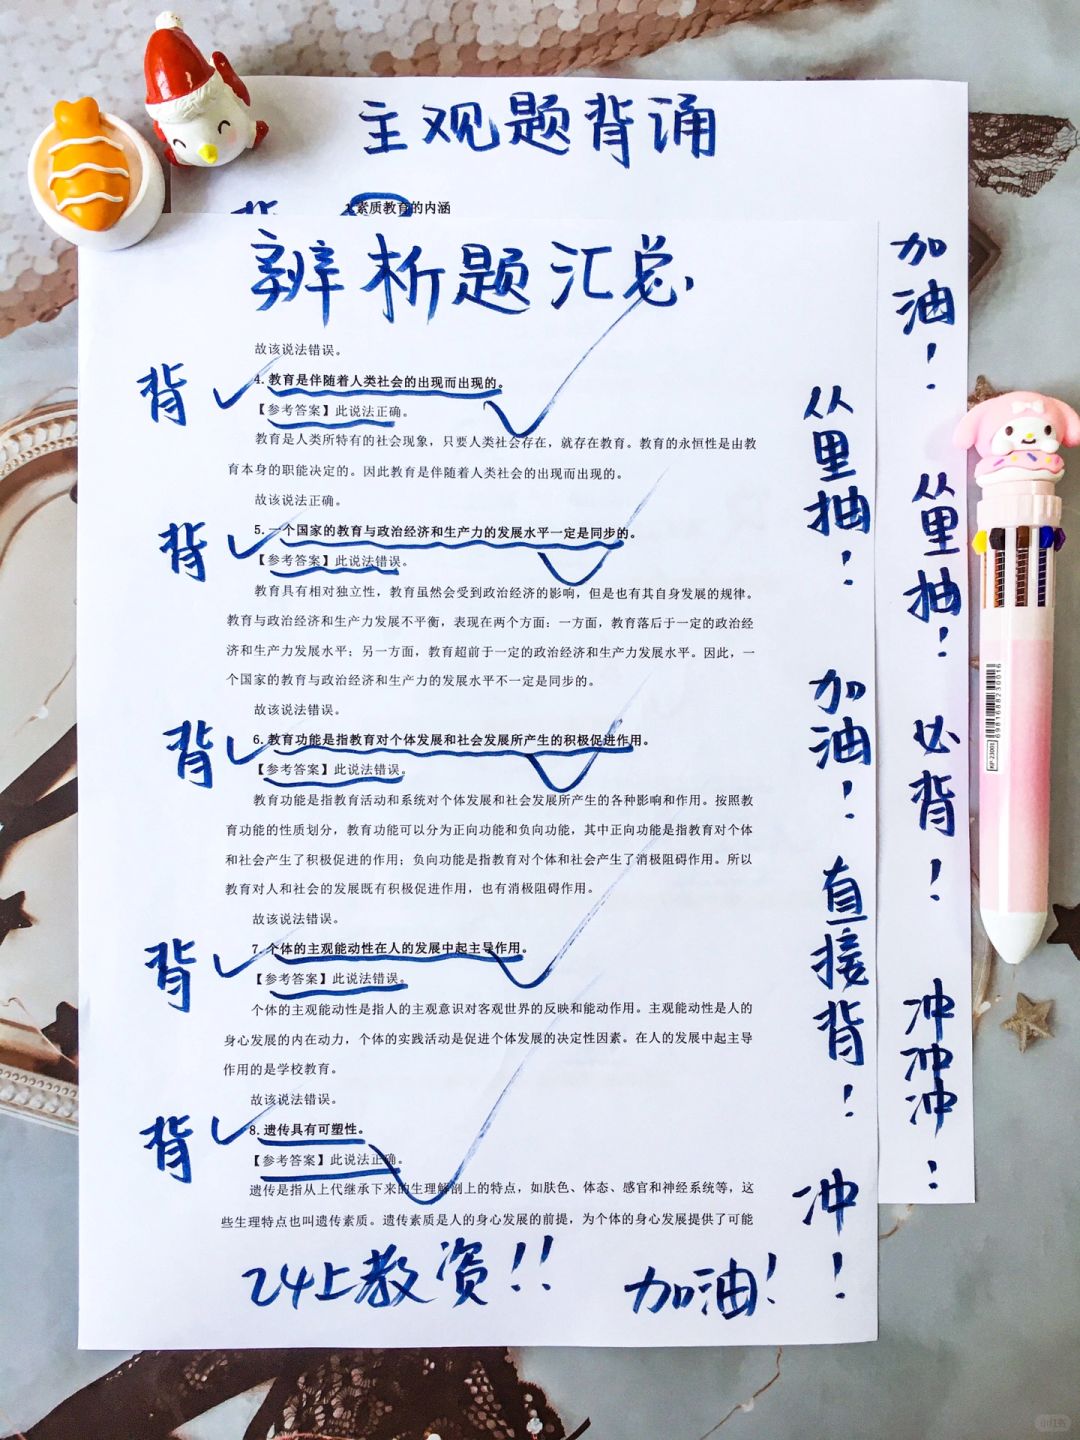 主观题背诵
背
1.素质教育的内涵
辨析题汇总
故该说法错误。
背
4. 教育是伴随着人类社会的出现而出现的。
【参考答案】此说法正确。
教育是人类所特有的社会现象，只要人类社会存在，就存在教育。教育的永恒性是由教
育本身的职能决定的。因此教育是伴随着人类社会的出现而出现的。
故该说法正确。
背
5. 一个国家的教育与政治经济和生产力的发展水平一定是同步的。
【参考答案】此说法错误。
教育具有相对独立性，教育虽然会受到政治经济的影响，但是也有其自身发展的规律。
教育与政治经济和生产力发展不平衡，表现在两个方面：一方面，教育落后于一定的政治经
济和生产力发展水平；另一方面，教育超前于一定的政治经济和生产力发展水平。因此，一
个国家的教育与政治经济和生产力的发展水平不一定是同步的。
故该说法错误。
背
6. 教育功能是指教育对个体发展和社会发展所产生的积极促进作用。
【参考答案】此说法错误。
教育功能是指教育活动和系统对个体发展和社会发展所产生的各种影响和作用。按照教
育功能的性质划分，教育功能可以分为正向功能和负向功能，其中正向功能是指教育对个体
和社会产生了积极促进的作用；负向功能是指教育对个体和社会产生了消极阻碍作用。所以
教育对人和社会的发展既有积极促进作用，也有消极阻碍作用。
故该说法错误。
背
7. 个体的主观能动性在人的发展中起主导作用。
【参考答案】此说法错误。
个体的主观能动性是指人的主观意识对客观世界的反映和能动作用。主观能动性是人的
身心发展的内在动力，个体的实践活动是促进个体发展的决定性因素。在人的发展中起主导
作用的是学校教育。
故该说法错误。
背
8. 遗传具有可塑性。
【参考答案】此说法正确。
遗传是指从上代继承下来的生理解剖上的特点，如肤色、体态、感官和神经系统等，这
些生理特点也叫遗传素质。遗传素质是人的身心发展的前提，为个体的身心发展提供了可能
24上教资！！
加油！
从里抽！
加油！
直接背！
冲！
加油！
从里抽！
必背！
冲冲冲！
6981688230016
KP-23001
小红书